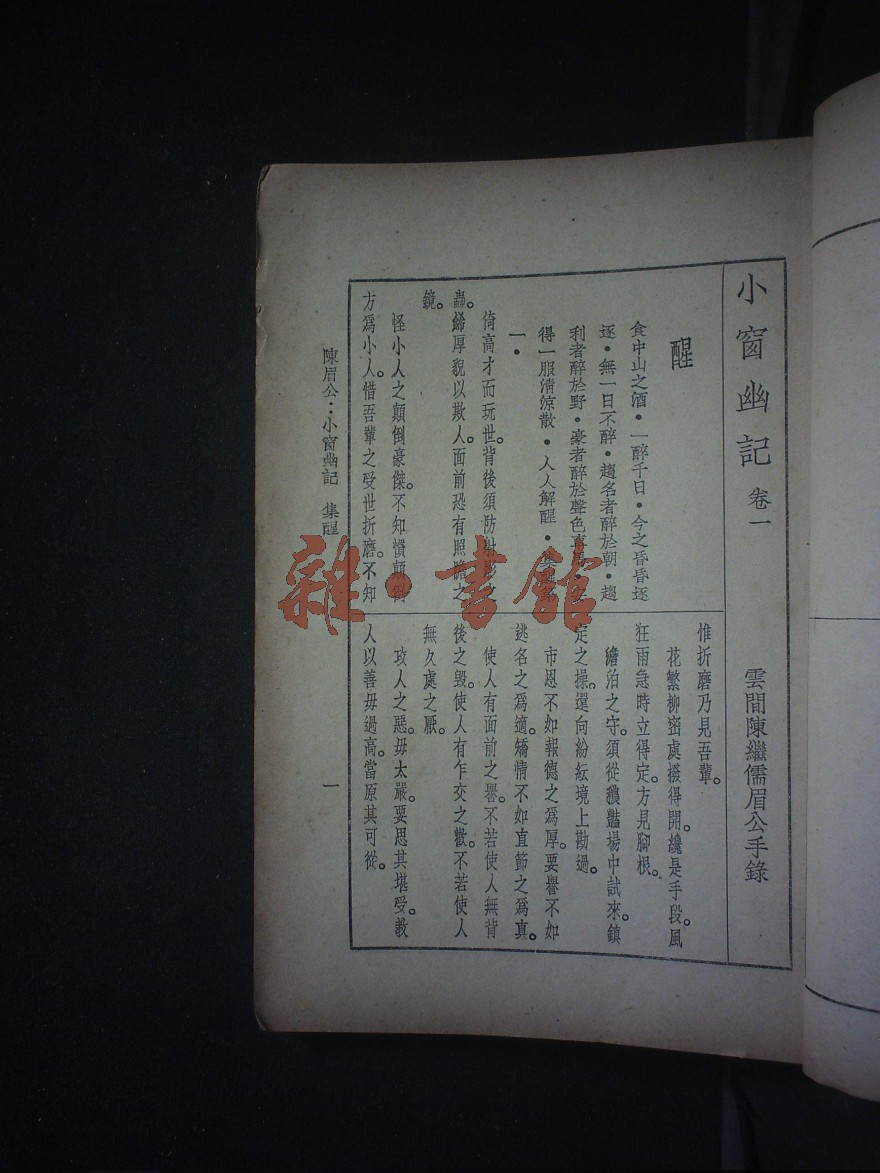 小窗幽記 卷一
雲間陳繼儒眉公手錄
醒
食中山之酒・一醉千日・今之昏昏逐
逐・無一日不醉・趨名者醉於朝・趨
利者醉於野・豪者醉於聲色車馬・安
得一服清涼散・人人解酲・集醒第
一・
倚高才而玩世。背後須防射影之
蟲。飾厚貌以欺人。面前恐有照膽之
鏡。
怪小人之顛倒豪傑。不知慣顛倒
方爲小人。惜吾輩之受世折磨。不知
惟折磨乃見吾輩。
花繁柳密處撥得開。纔是手段。風
狂雨急時立得定。方見脚根。
澹泊之守。須從穠豔場中試來。鎮
定之操。還向紛紜境上勘過。
市恩不如報德之爲厚。要譽不如
逃名之爲適。矯情不如直節之爲真。
使人有面前之譽。不若使人無背
後之毀。使人有乍交之歡。不若使人
無久處之厭。
攻人之惡。毋太嚴。要思其堪受。教
人以善毋過高。當原其可從。
陳眉公：小窗幽記 集醒
一
雜・書館